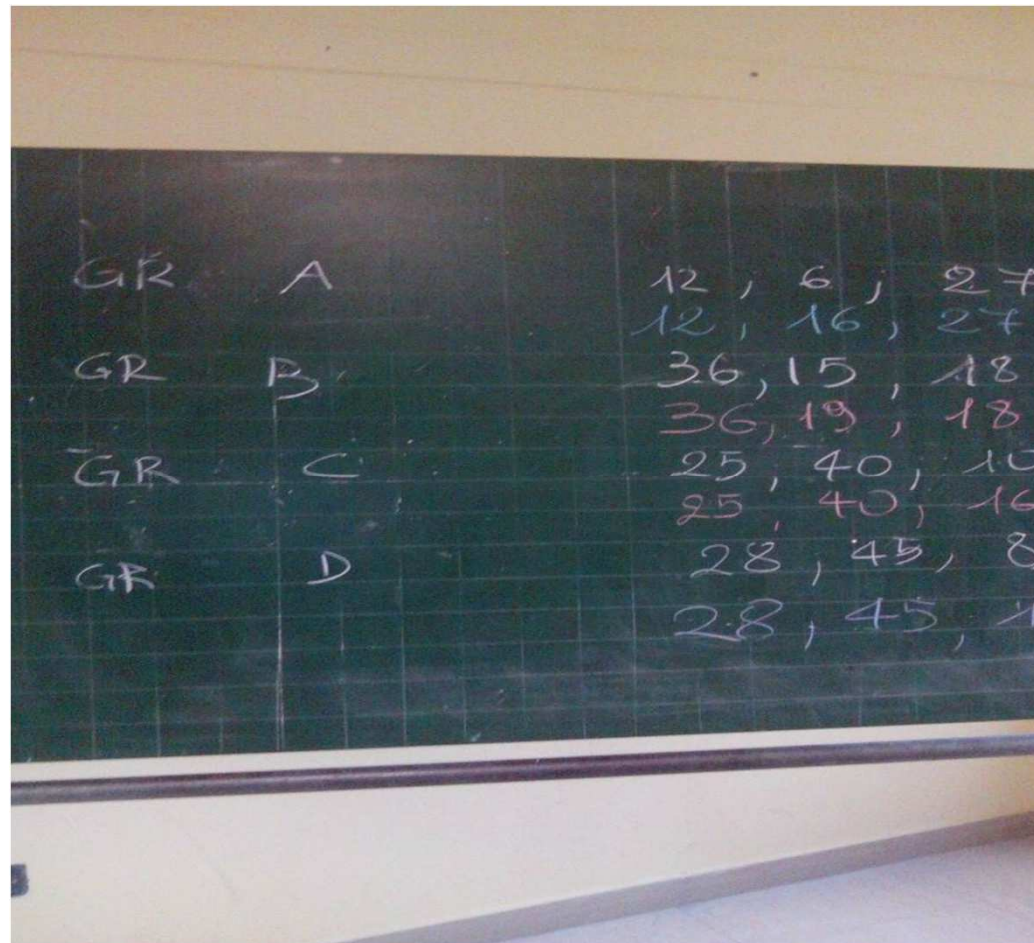 GR A 12 , 6 ; 27
12 , 16 , 27
GR B 36 , 15 , 18
36 , 19 , 18
GR C 25 , 40 , 10
25 , 40 , 16
GR D 28 , 45 , 8
28 , 45 , 1